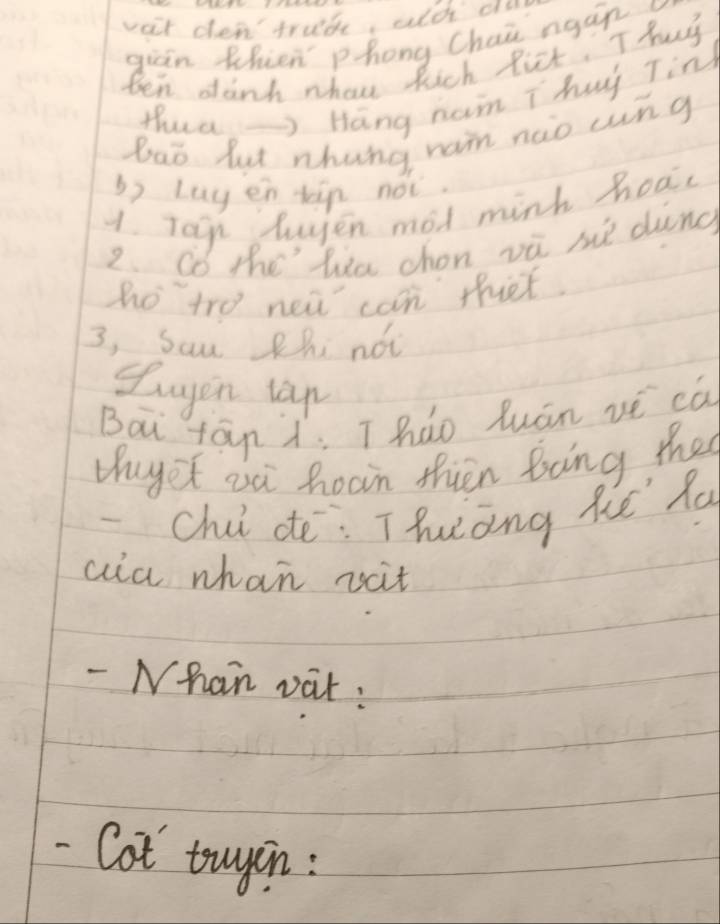 vật đến trước, cưới
giận khiến Phong Châu ngập
bèn đánh nhau kịch liệt. Thuỷ
thua → Hàng năm Thuỷ Tinh
bão lụt nhưng năm nào cũng
b) Luyện tập nói.
1. Tập luyện một mình hoặc
2. Có thể lựa chọn và sử dụng
hỗ trợ nếu cần thiết.
3, Sau khi nói
Luyện tập
Bài tập 1: Thảo luận về cá
thuyết và hoàn thiện bảng theo
- Chủ đề: Thường kể lạ
của nhân vật
- Nhân vật:
- Cốt truyện: